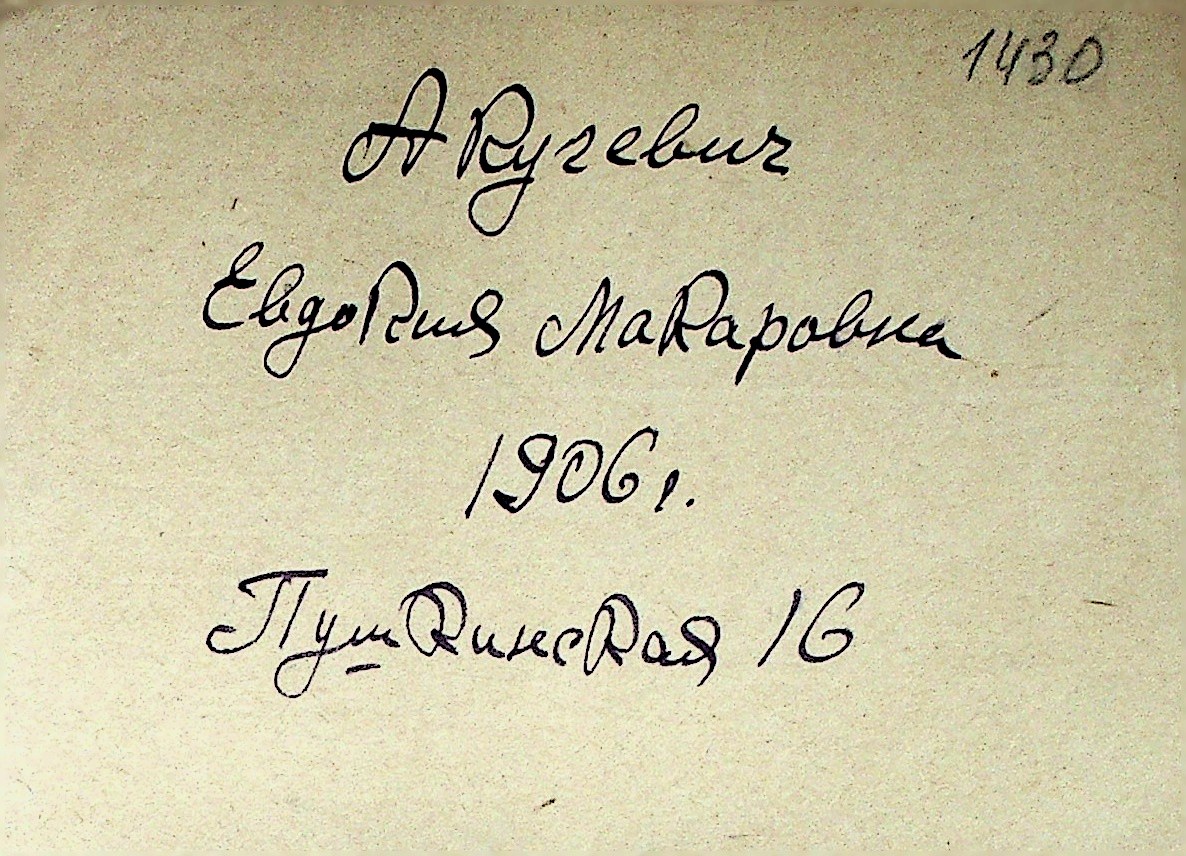 1430
Акугевич
Евдокия Макаровна
1906 г.
Пушкинская 16